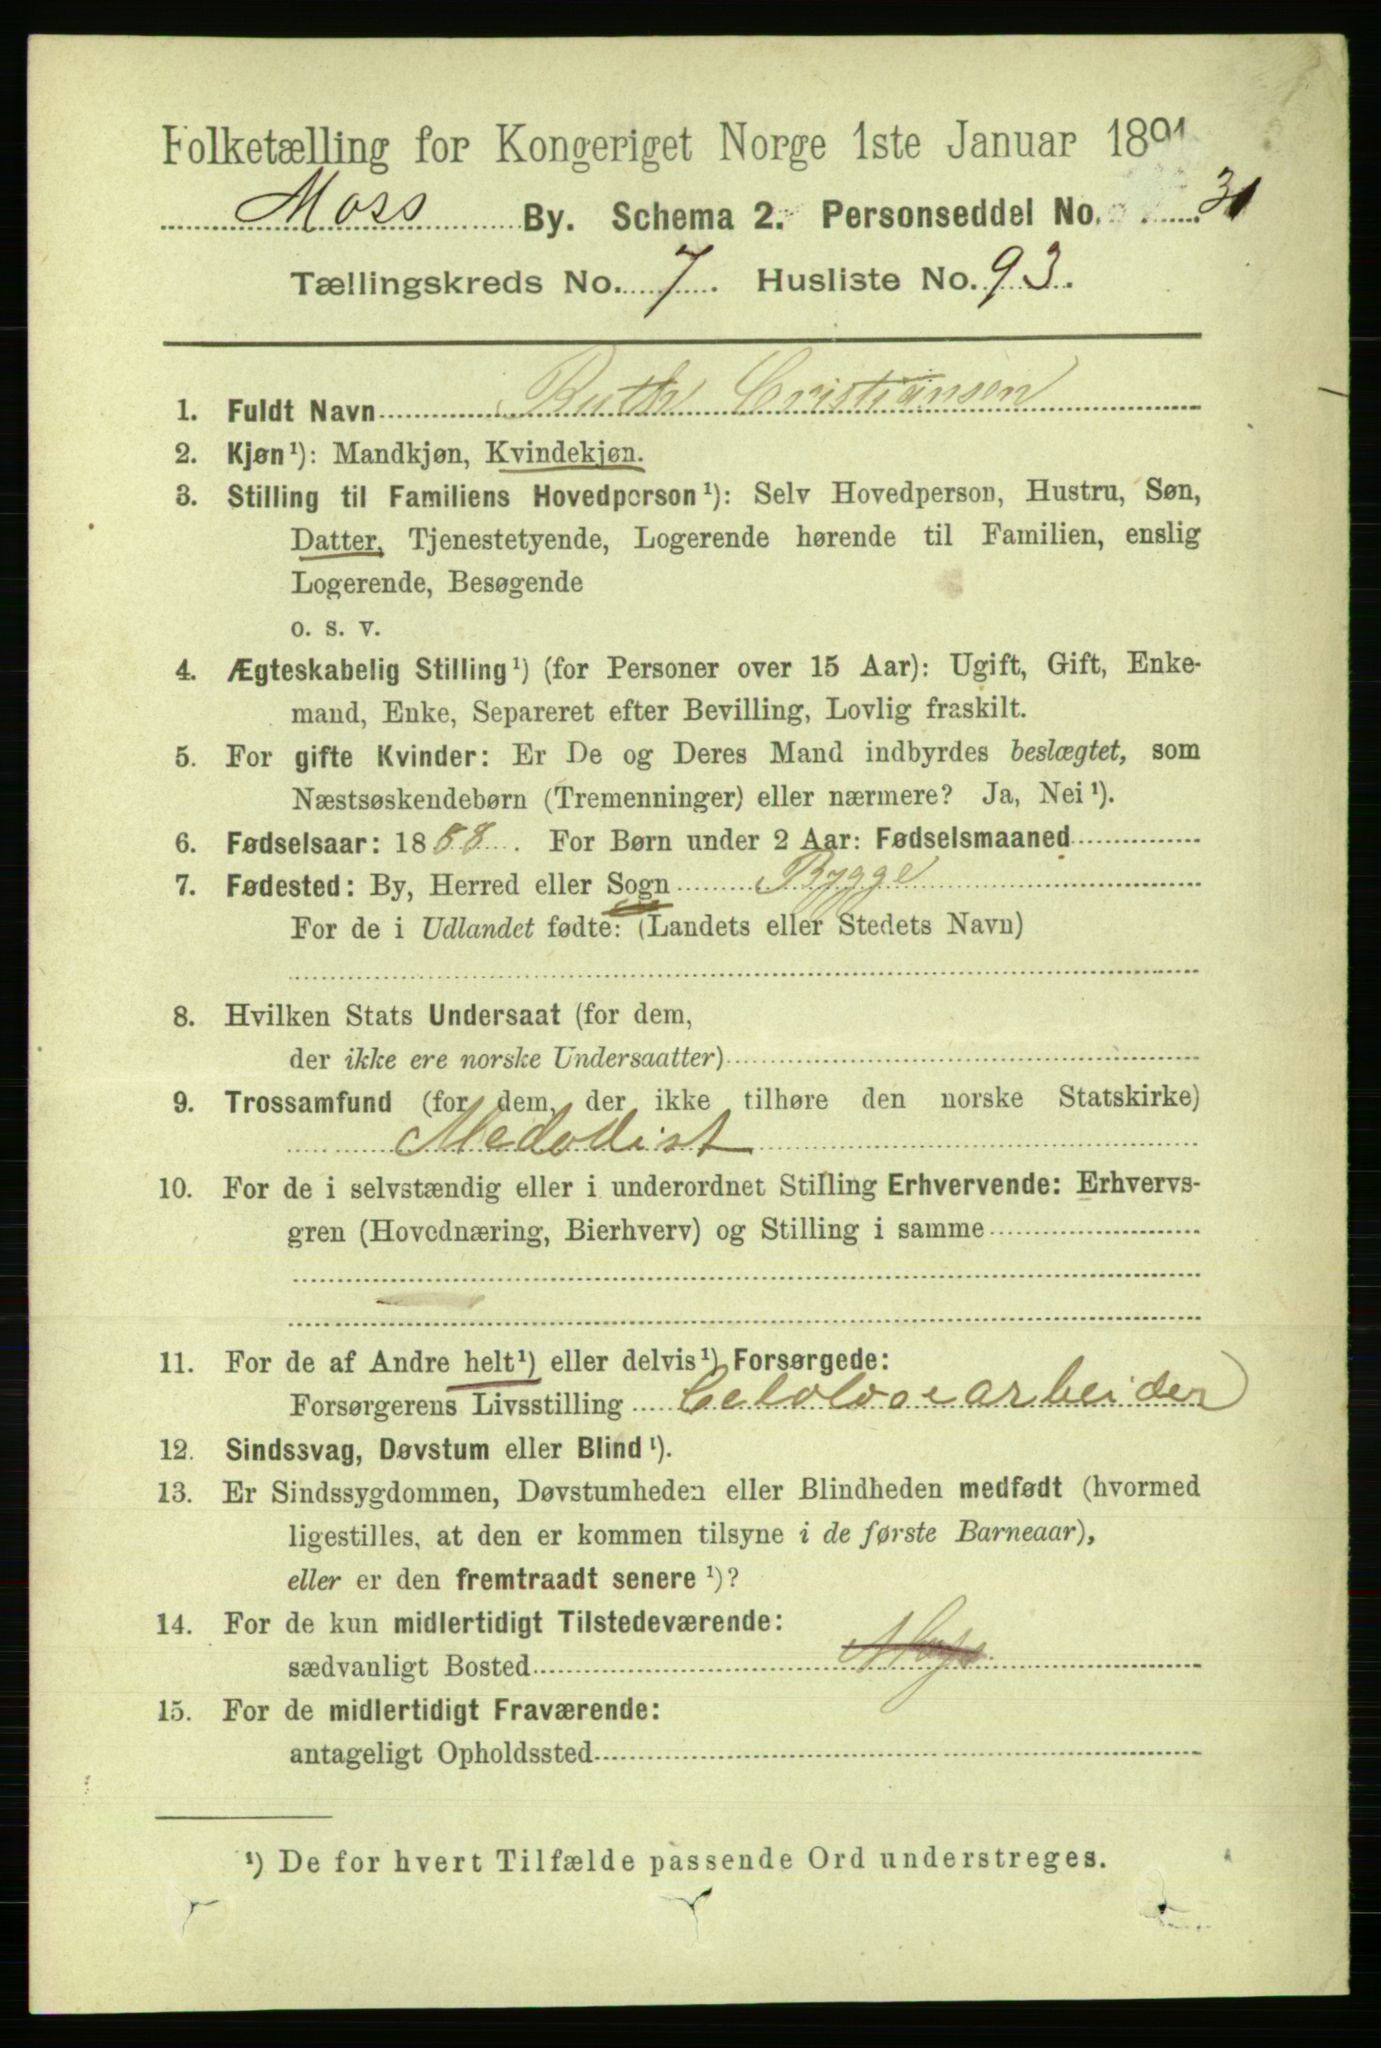 Folketælling for Kongeriget Norge 1ste Januar 1891
Moss By. Schema 2. Personseddel No. 31
Tællingskreds No. 7. Husliste No. 93.
1. Fuldt Navn Ruth Cristiansen
2. Kjøn¹): Mandkjøn, Kvindekjøn.
3. Stilling til Familiens Hovedperson¹): Selv Hovedperson, Hustru, Søn,
Datter, Tjenestetyende, Logerende hørende til Familien, enslig
Logerende, Besøgende
o. s. v.
4. Ægteskabelig Stilling¹) (for Personer over 15 Aar): Ugift, Gift, Enke-
mand, Enke, Separeret efter Bevilling, Lovlig fraskilt.
5. For gifte Kvinder: Er De og Deres Mand indbyrdes beslægtet, som
Næstsøskendebørn (Tremenninger) eller nærmere? Ja, Nei¹).
6. Fødselsaar: 1888. For Børn under 2 Aar: Fødselsmaaned
7. Fødested: By, Herred eller Sogn Rygge
For de i Udlandet fødte: (Landets eller Stedets Navn)
8. Hvilken Stats Undersaat (for dem,
der ikke ere norske Undersaatter)
9. Trossamfund (for dem, der ikke tilhøre den norske Statskirke)
Medodist
10. For de i selvstændig eller i underordnet Stilling Erhvervende: Erhvervs-
gren (Hovednæring, Bierhverv) og Stilling i samme
11. For de af Andre helt¹) eller delvis¹) Forsørgede:
Forsørgerens Livsstilling Celolosearbeider
12. Sindssvag, Døvstum eller Blind¹).
13. Er Sindssygdommen, Døvstumheden eller Blindheden medfødt (hvormed
ligestilles, at den er kommen tilsyne i de første Barneaar),
eller er den fremtraadt senere¹)?
14. For de kun midlertidigt Tilstedeværende:
sædvanligt Bosted Moss
15. For de midlertidigt Fraværende:
antageligt Opholdssted
¹) De for hvert Tilfælde passende Ord understreges.